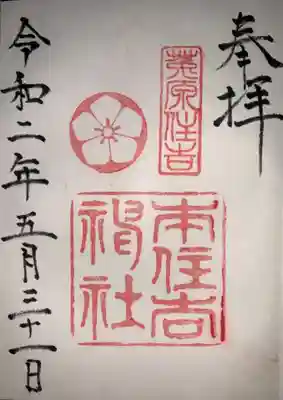 奉拝
菟原住吉
本住吉
神社
令和二年五月三十一日